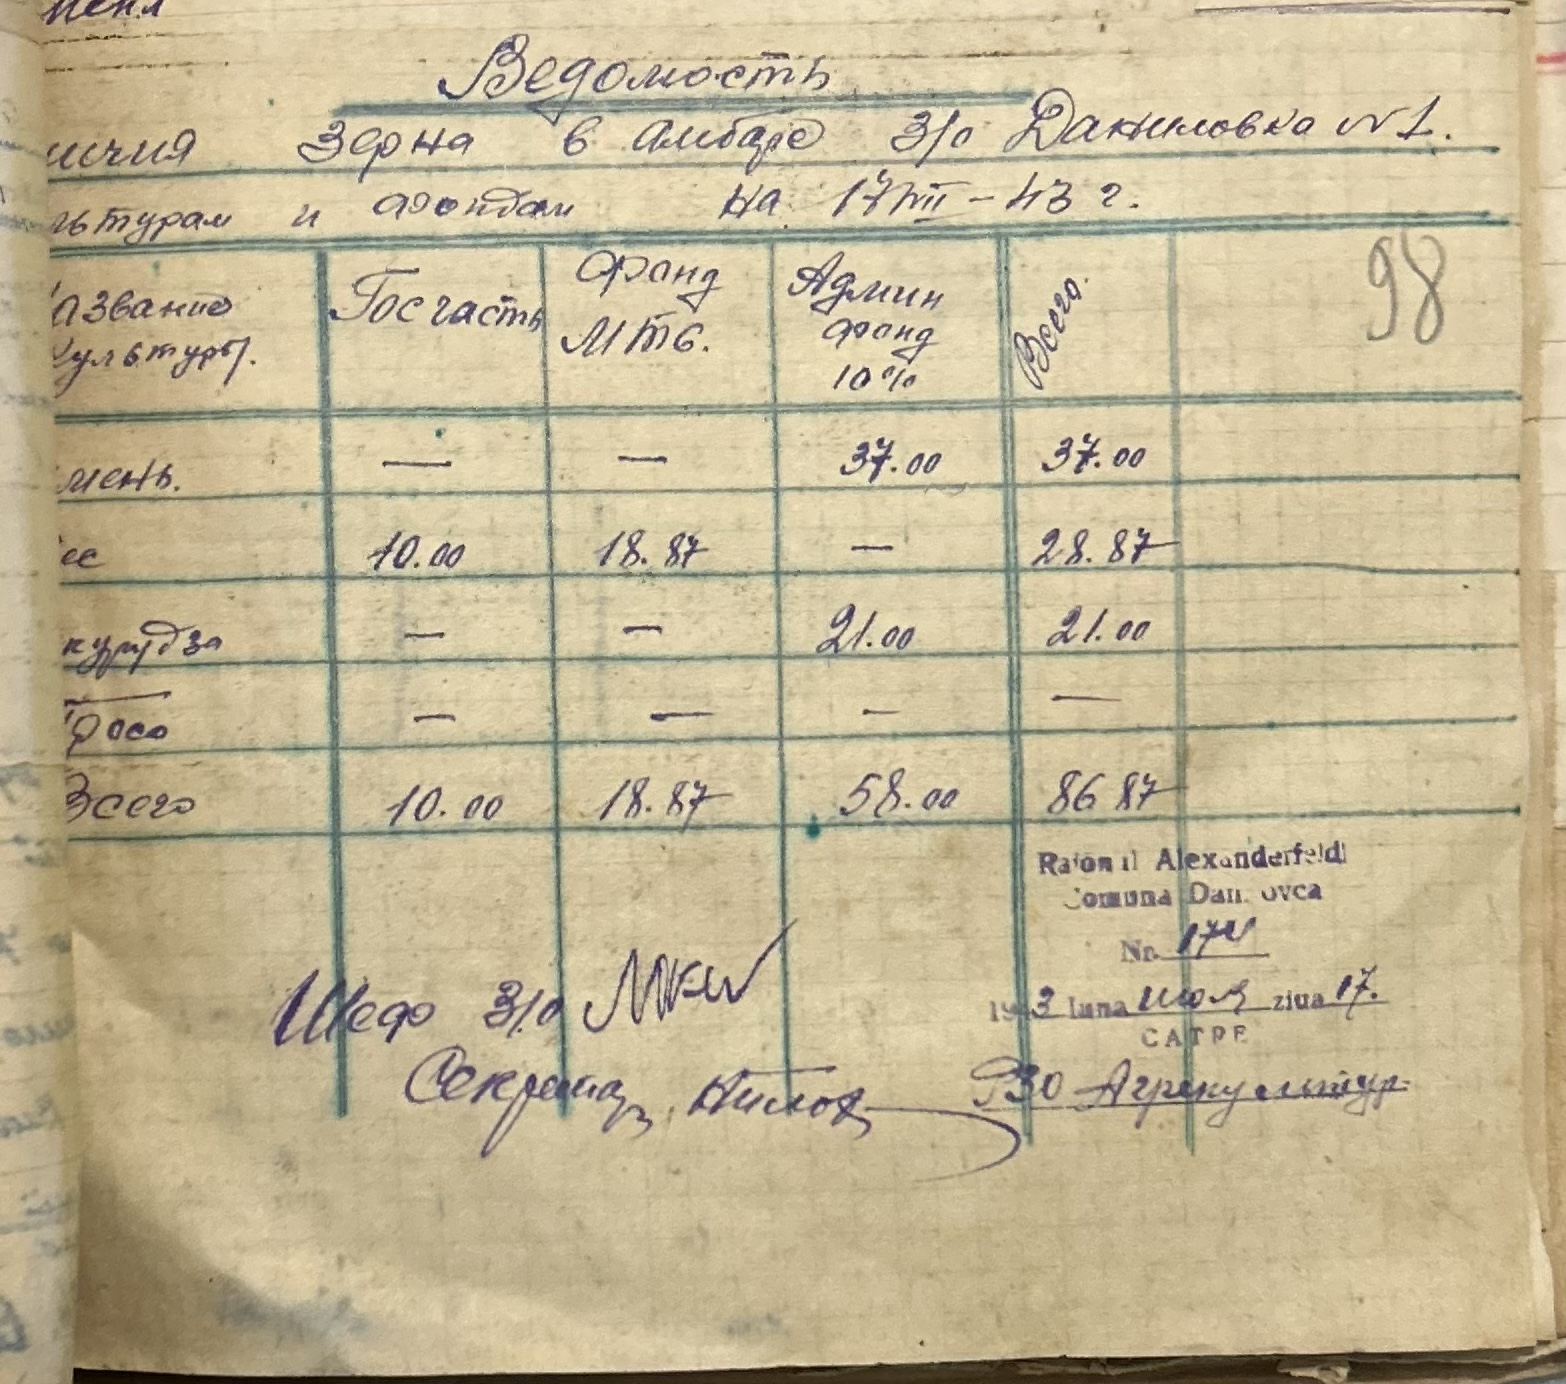 Ведомость
ичия зерна в амбаре з/о Даниловка №1.
льтурам и фондам на 17/VII – 43 г.
98
азвание культуры. Госчасть Фонд МТС. Админ фонд 10% Всего.
мень. — — 37.00 37.00
ес 10.00 18.87 — 28.87
курудза — — 21.00 21.00
просо — — — —
Всего 10.00 18.87 58.00 86 87
Raionul Alexanderfeld
Comuna Danilovca
Nr. 174
1943 luna июля ziua 17.
CATRE
Шеф з/о
Секретар
РЗО Агрикультур